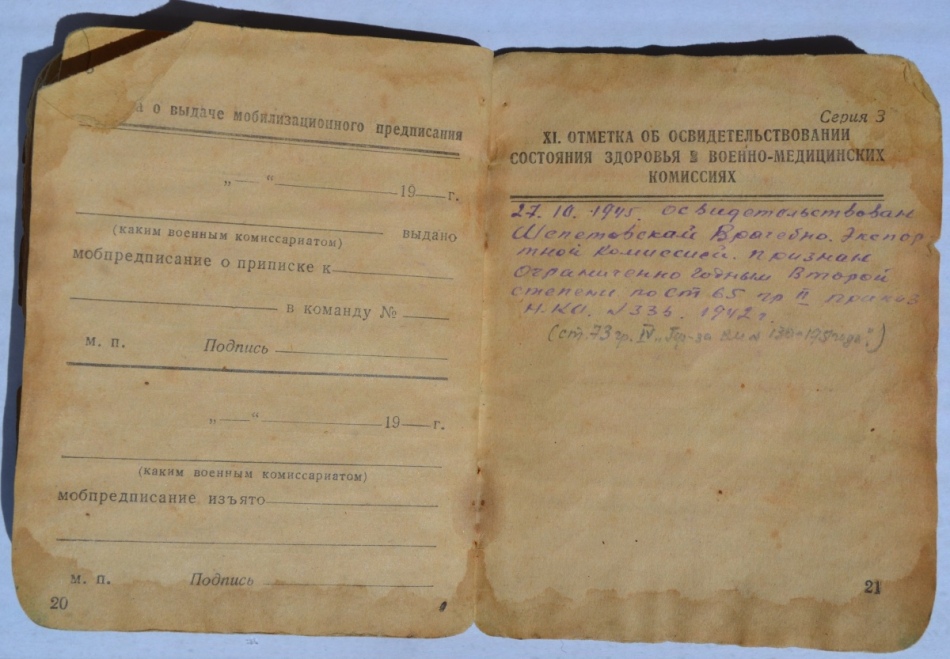 о выдаче мобилизационного предписания
„—“ 19 г.
выдано
(каким военным комиссариатом)
мобпредписание о приписке к
в команду №
м. п. Подпись
„—“ 19 г.
(каким военным комиссариатом)
мобпредписание изъято
м. п. Подпись
20
Серия 3
XI. ОТМЕТКА ОБ ОСВИДЕТЕЛЬСТВОВАНИИ
СОСТОЯНИЯ ЗДОРОВЬЯ В ВОЕННО-МЕДИЦИНСКИХ
КОМИССИЯХ
27. 10. 1945. освидетельствован
Шепетовской Врачебно. Экспер
тной Комиссией. признан
ограниченно годным Второй
степени по ст 65 гр II приказ
Н.КО. № 336. 1942 г.
(ст. 73 гр. IV
21